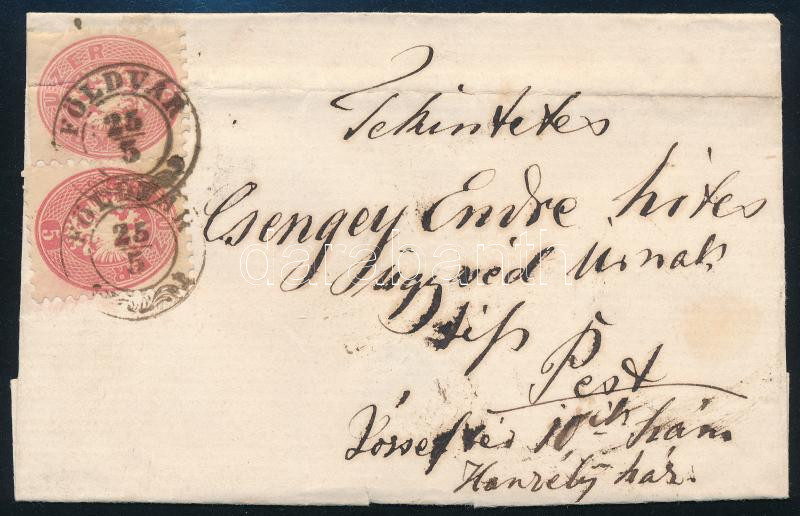 FÖLDVÁR
25
5
FÖLDVÁR
25
5
5
Tekintetes
Csengey Endre hites
Ügyvéd Urnak
Pest
10ik szám
Hanzély ház.
darabanth